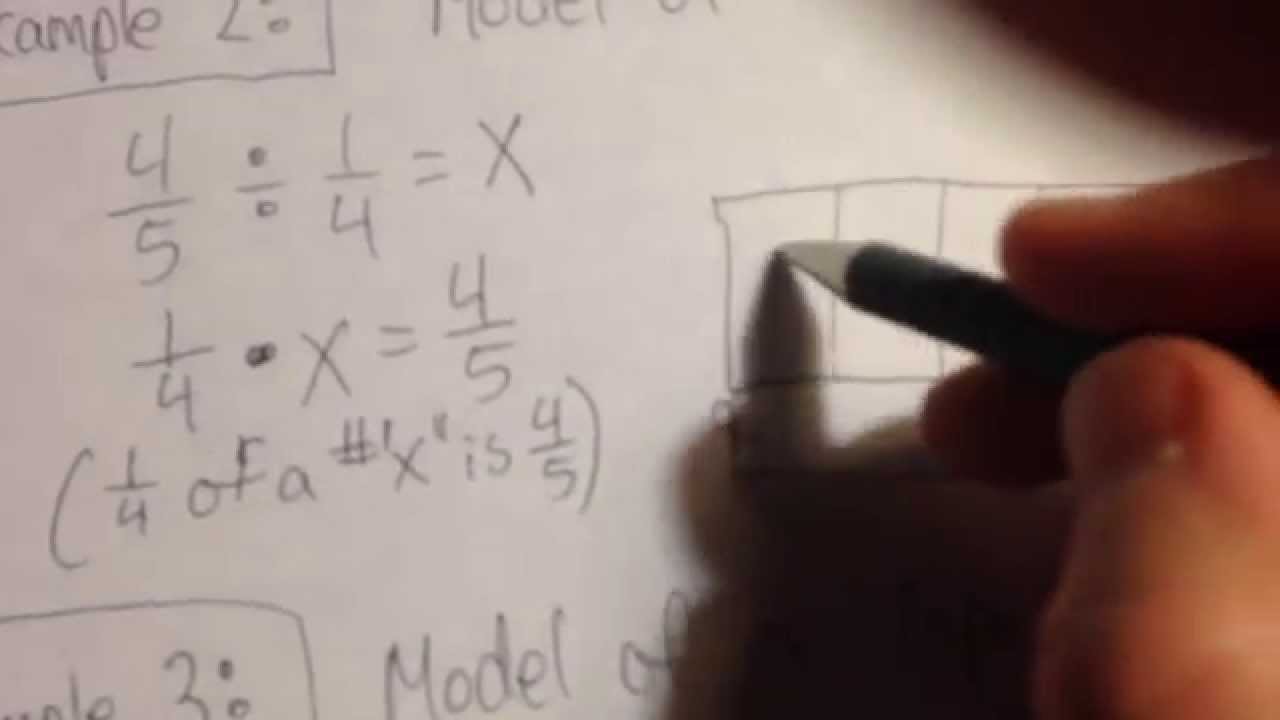 xample 2: Model of
4/5 ÷ 1/4 = X
1/4 • X = 4/5
(1/4 of a #'x' is 4/5)
mple 3: Model of